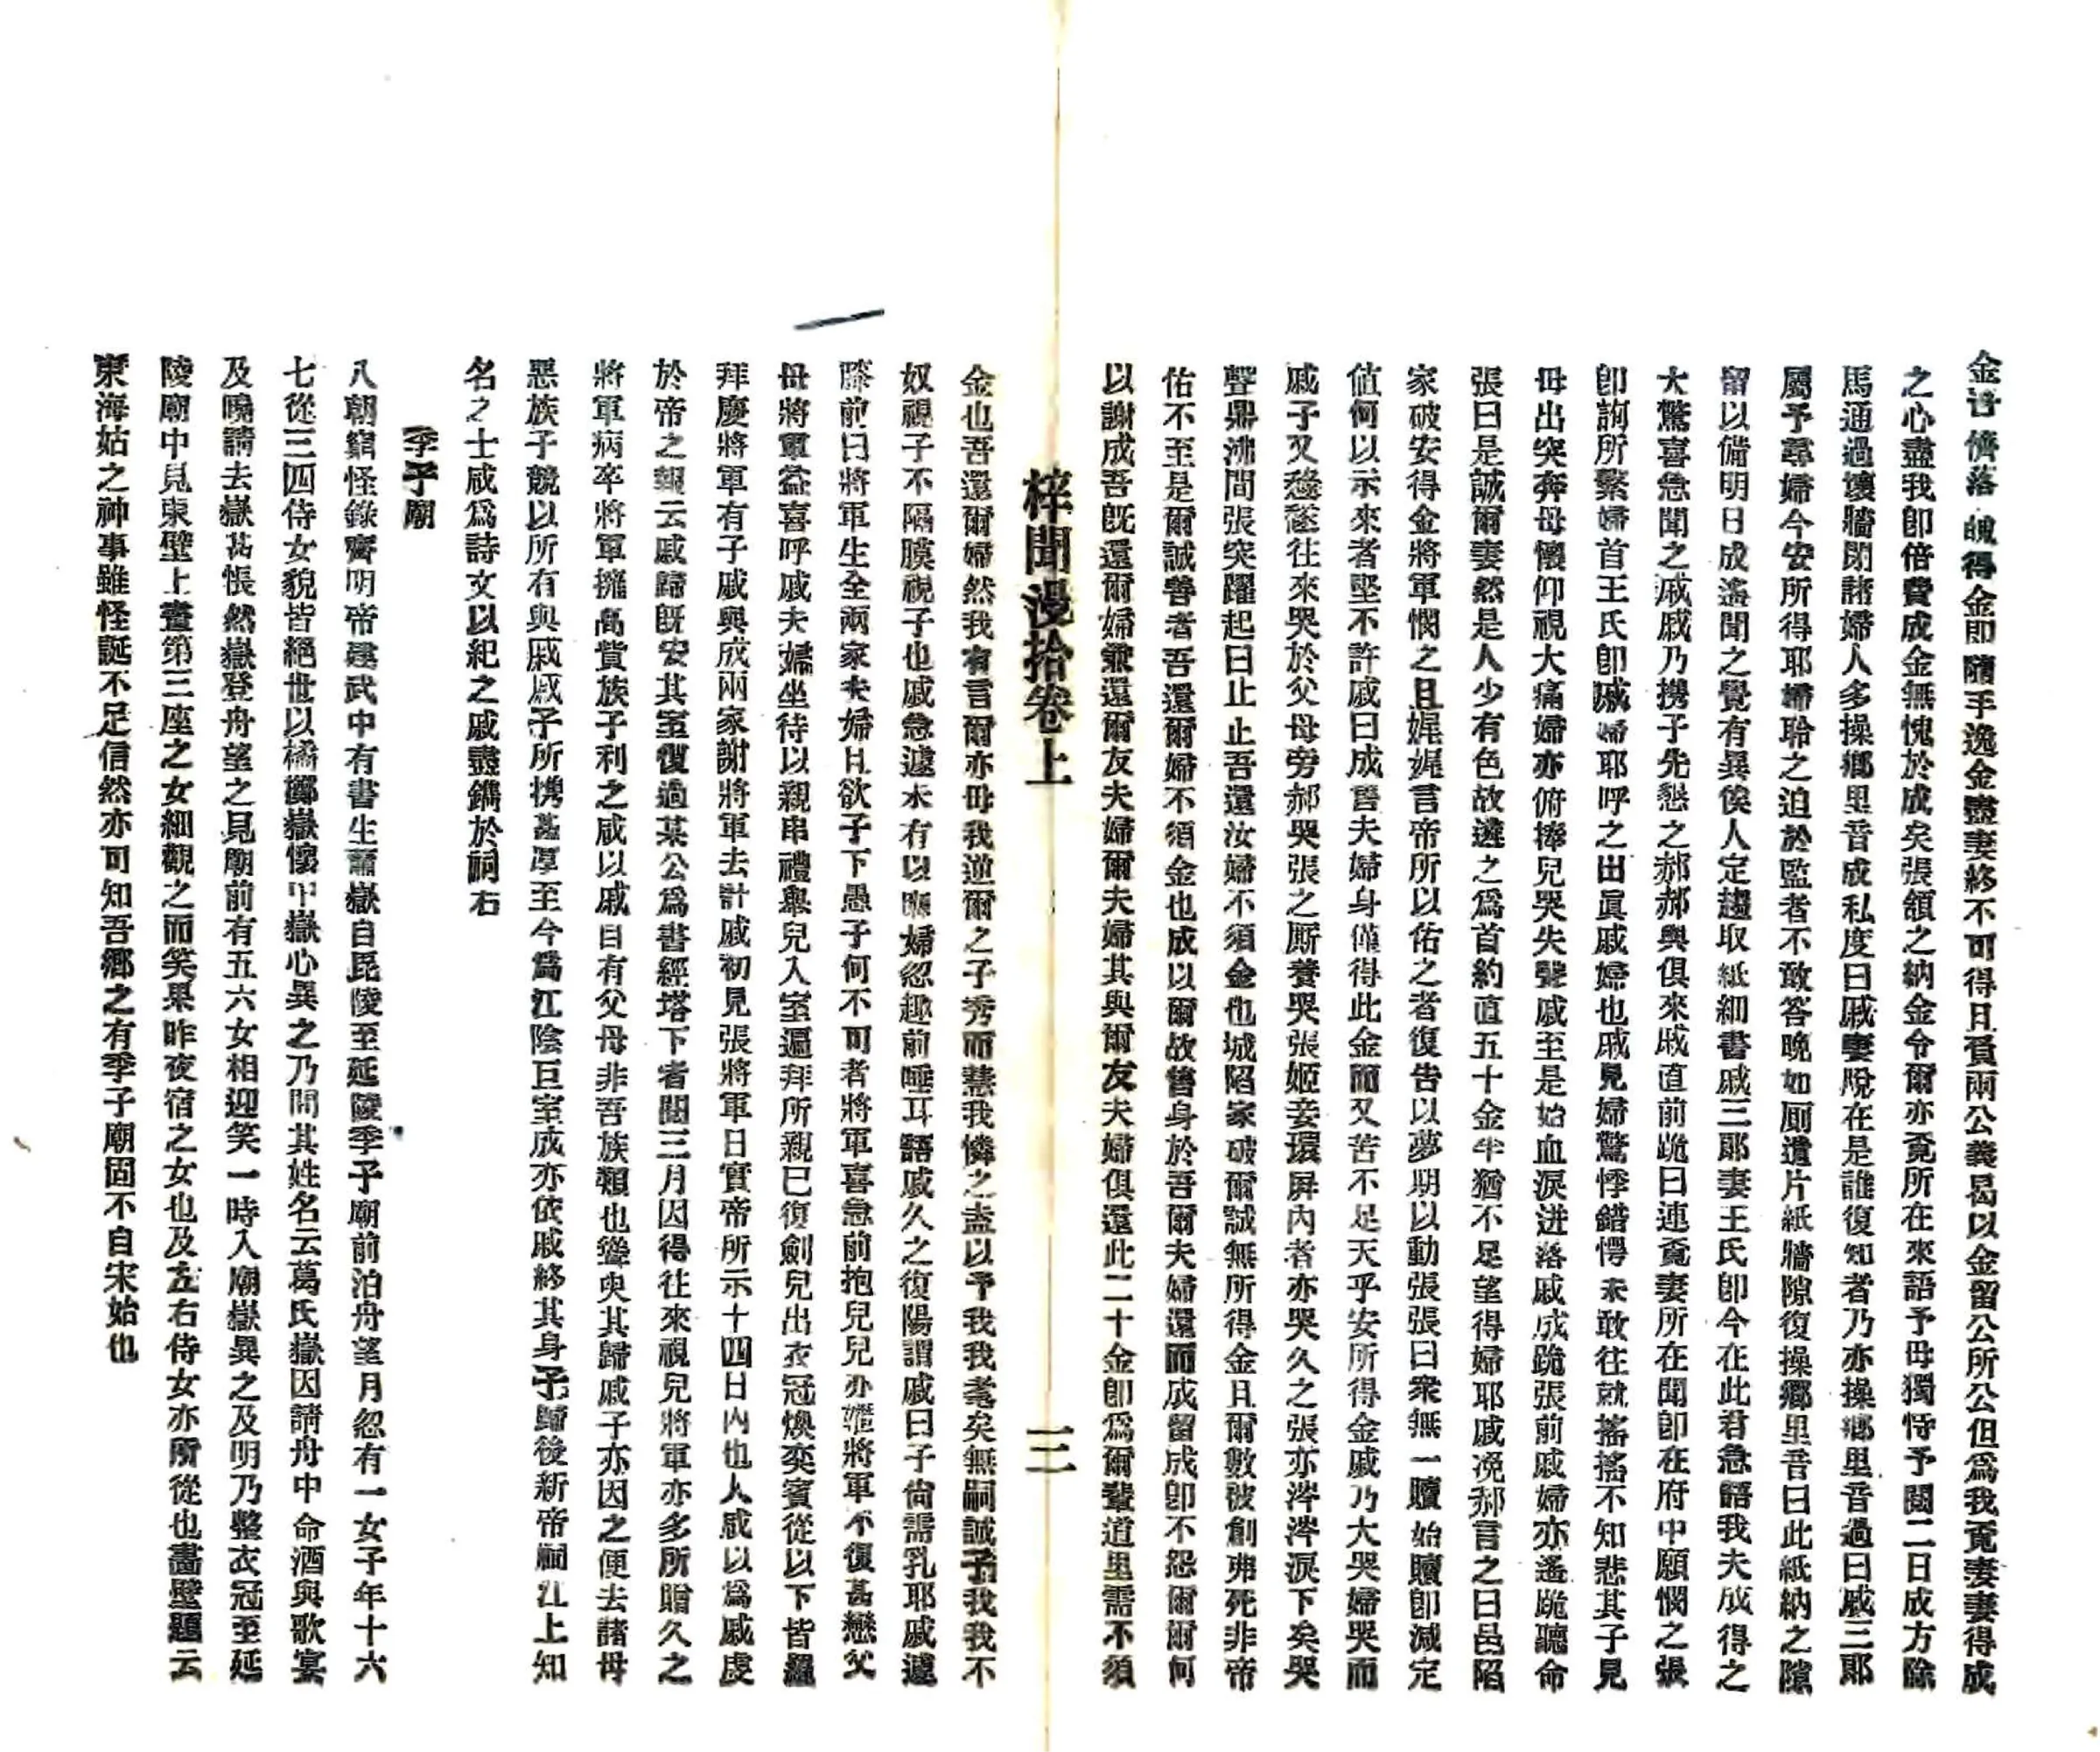 金晋儕落魄得金即隨手逸金盡妻終不可得且負兩公義曷以金留公所公但為我覔妻妻得成
之心盡我卽倍費成金無愧於成矣張頷之納金令爾亦覔所在來語予毋獨恃予閱二日成方除
馬通過壞牆閉諸婦人多操鄉里音成私度曰戚妻脫在是誰復知者乃亦操鄉里音過曰戚三郞
屬予尋婦今安所得耶婦聆之迫於監者不敢答晚如厠遺片紙牆隙復操鄉里音曰此紙納之隙
留以備明日成遙聞之覺有異俟人定趨取紙細書戚三郞妻王氏卽今在此君急語我夫成得之
大驚喜急聞之戚戚乃携子先懇之郝郝與俱來戚直前跪曰連覔妻所在聞卽在府中願憫之張
卽詢所繫婦首王氏卽戚婦耶呼之出眞戚婦也戚見婦驚悸錯愕未敢往就搖搖不知悲其子見
母出突奔母懷仰視大痛婦亦俯捧兒哭失聲戚至是始血淚迸落戚成跪張前戚婦亦遙跪聽命
張曰是誠爾妻然是人少有色故遴之爲首約直五十金半猶不足望得婦耶戚浼郝言之曰邑陷
家破安得金將軍憫之且娓娓言帝所以佑之者復告以夢期以動張張曰衆無一贖始贖卽減定
値何以示來者堅不許戚曰成鬻夫婦身僅得此金而又苦不足天乎安所得金戚乃大哭婦哭而
戚子又戀戀往來哭於父母旁郝哭張之厮養哭張姬妾環屏內者亦哭久之張亦涔涔淚下矣哭
聲鼎沸間張突躍起曰止止吾還汝婦不須金也城陷家破爾誠無所得金且爾數被創弗死非帝
佑不至是爾誠善者吾還爾婦不須金也成以爾故鬻身於吾爾夫婦還而成留成卽不怨爾爾何
以謝成吾旣還爾婦兼還爾友夫婦爾夫婦其與爾友夫婦俱還此二十金卽爲爾輩道里需不須
梓聞漫拾卷上 三
金也吾還爾婦然我有言爾亦毋我逆爾之子秀而慧我憐之盍以予我我耄矣無嗣誠子我我不
奴視子不隔膜視子也戚急遽未有以應婦忽趣前唾耳語戚久之復陽謂戚曰子尙需乳耶戚遽
膝前曰將軍生全兩家夫婦且欲子下愚子何不可者將軍喜急前抱兒兒亦嬥將軍不復甚戀父
母將軍益喜呼戚夫婦坐待以親串禮舉兒入室遍拜所親已復劍兒出衣冠煥奕賓從以下皆羅
拜慶將軍有子戚與成兩家謝將軍去計戚初見張將軍日實帝所示十四日內也人咸以爲戚虔
於帝之報云戚歸旣安其室復過某公爲書經塔下者閱三月因得往來視兒將軍亦多所贈久之
將軍病卒將軍擁高貲族子利之咸以戚自有父母非吾族類也聳臾其歸戚子亦因之便去諸母
惡族子競以所有與戚戚子所携甚厚至今爲江陰巨室成亦依戚終其身予歸後新帝嗣江上知
名之士咸爲詩文以紀之戚盡鐫於祠右
季子廟
八朝窮怪錄齊明帝建武中有書生蕭嶽自毘陵至延陵季子廟前泊舟望月忽有一女子年十六
七從三四侍女貌皆絕世以橘擲嶽懷中嶽心異之乃問其姓名云葛氏嶽因請舟中命酒與歌宴
及曉請去嶽甚悵然嶽登舟望之見廟前有五六女相迎笑一時入廟嶽異之及明乃整衣冠至延
陵廟中見東壁上畫第三座之女細觀之而笑果昨夜宿之女也及左右侍女亦所從也畵壁題云
東海姑之神事雖怪誕不足信然亦可知吾鄉之有季子廟固不自宋始也